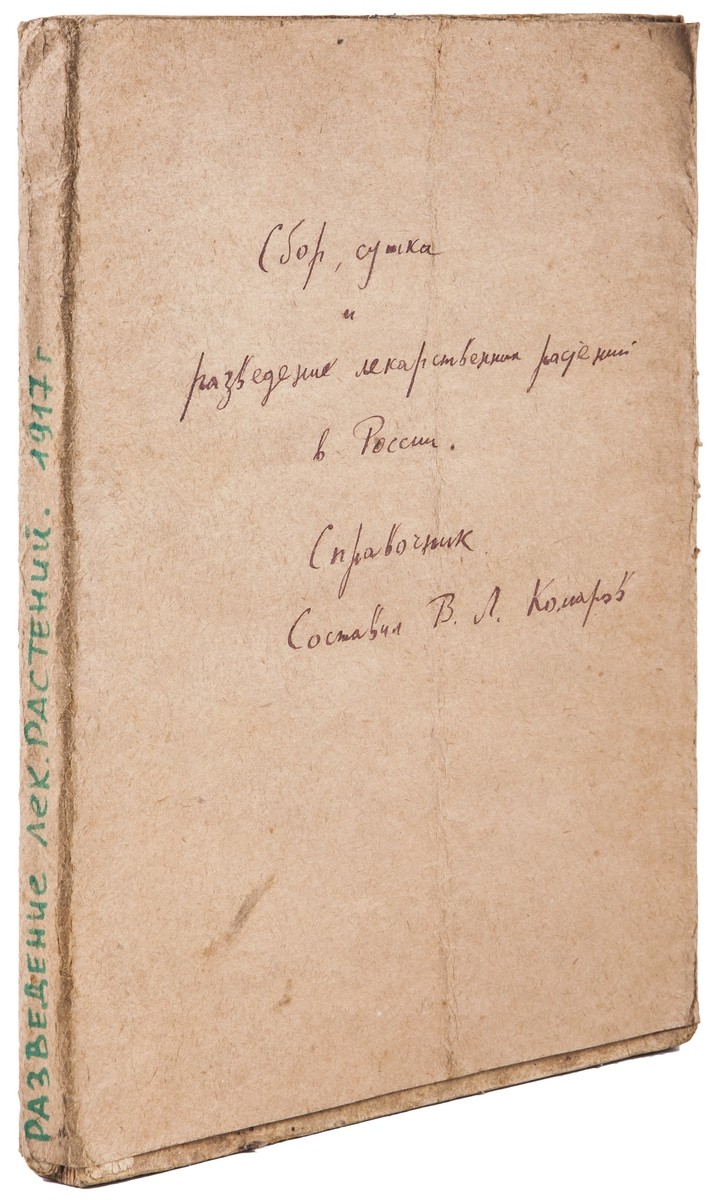 Сбор, сушка
и
разведение лекарственных растений
в России.
Справочник
Составил В. Л. Комаров
РАЗВЕДЕНИЕ ЛЕК. РАСТЕНИЙ. 1917 г